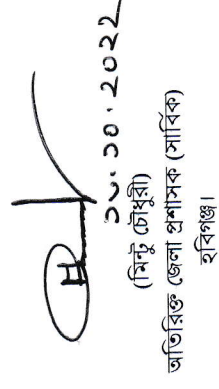 ১৩.১০.২০২২
(মিন্টু চৌধুরী)
অতিরিক্ত জেলা প্রশাসক (সার্বিক)
হবিগঞ্জ।